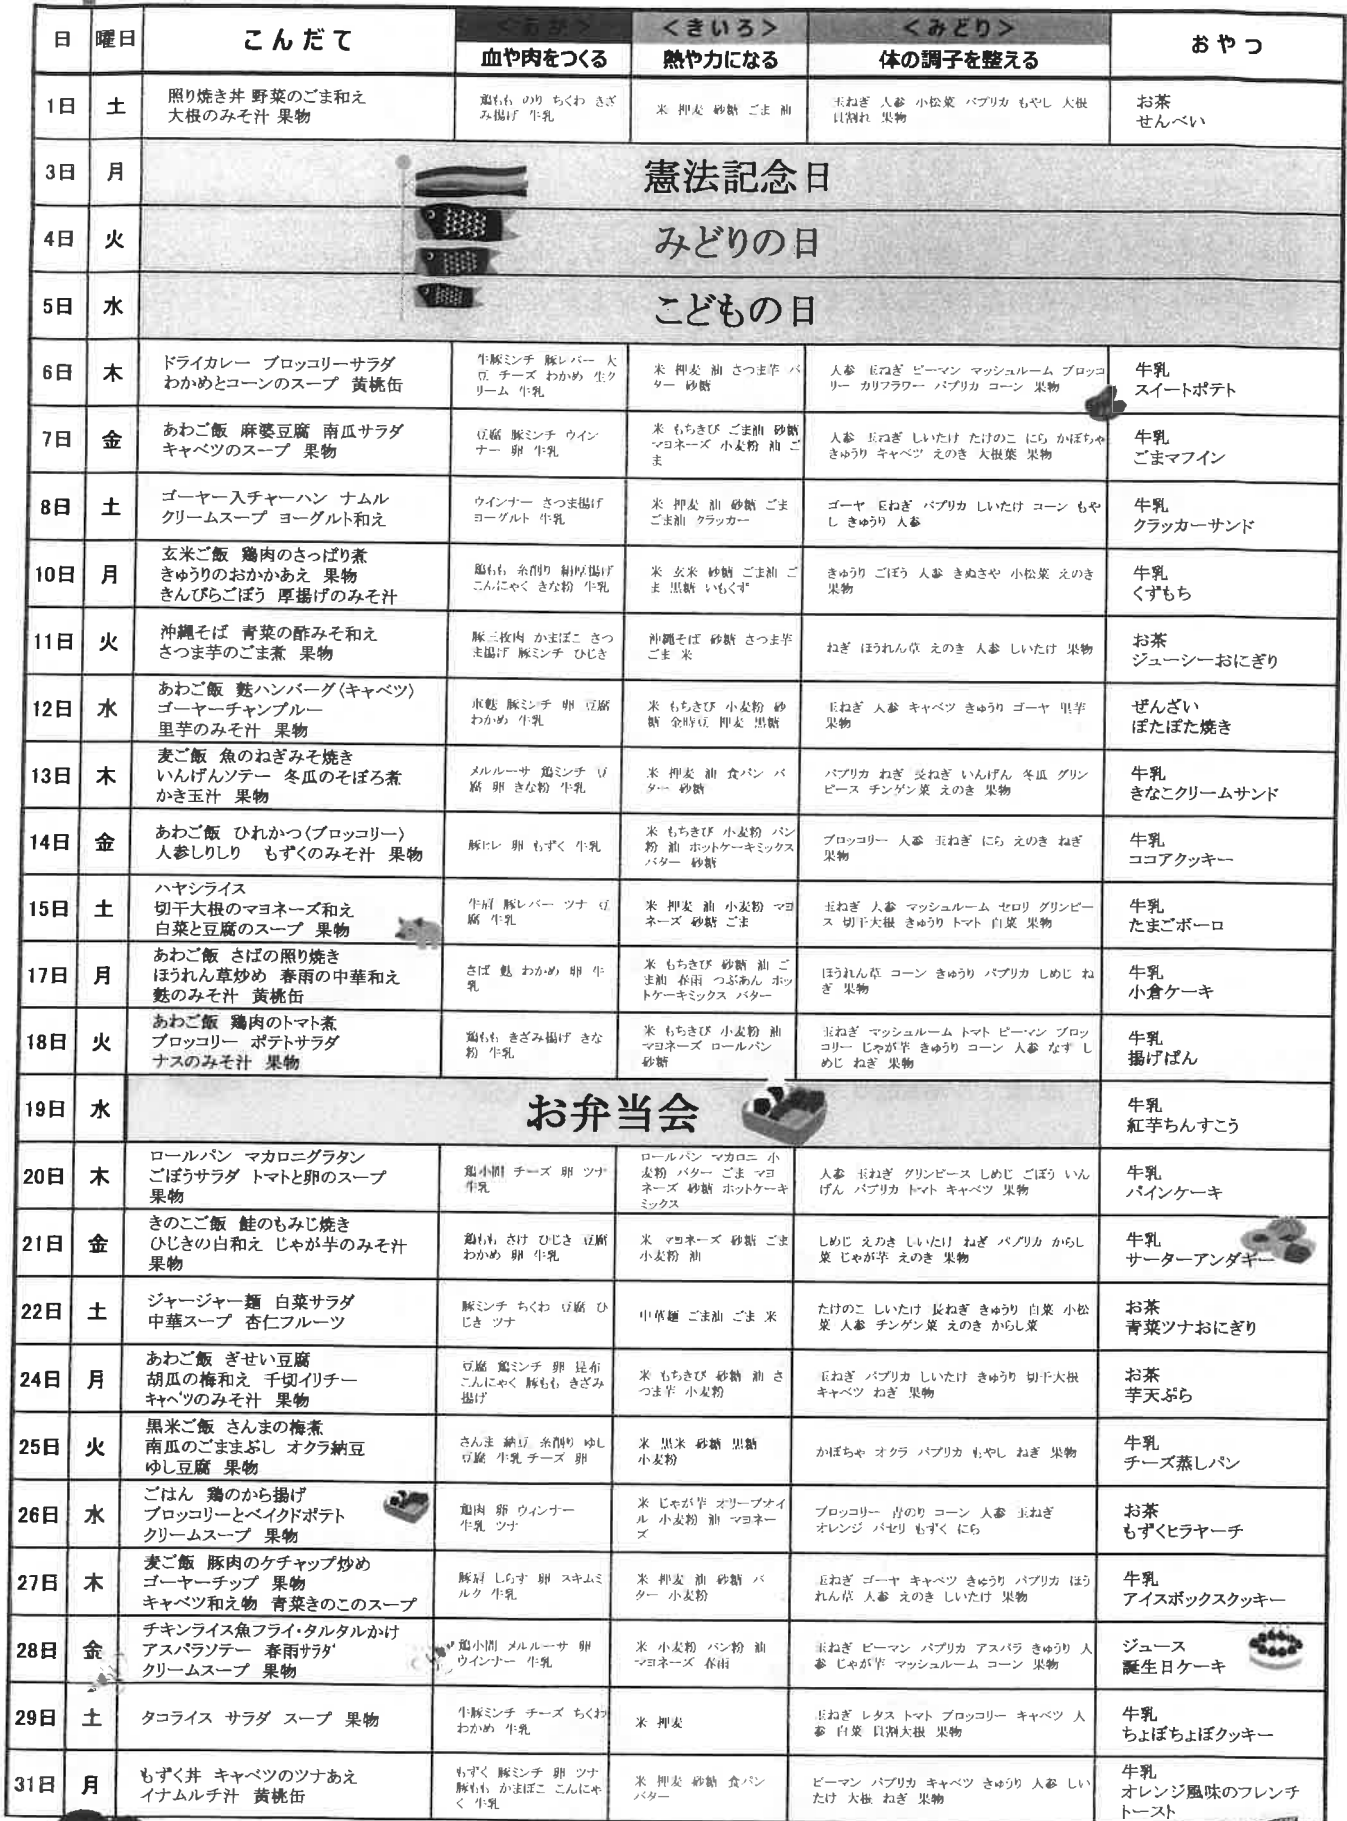 日 曜日 こんだて <あか> <きいろ> <みどり> おやつ
血や肉をつくる 熱や力になる 体の調子を整える
1日 土
照り焼き丼 野菜のごま和え
大根のみそ汁 果物
鶏もも のり ちくわ きざ
み揚げ 牛乳
米 押麦 砂糖 ごま 油
玉ねぎ 人参 小松菜 パプリカ もやし 大根
貝割れ 果物
お茶
せんべい
3日 月 憲法記念日
4日 火 みどりの日
5日 水 こどもの日
6日 木
ドライカレー ブロッコリーサラダ
わかめとコーンのスープ 黄桃缶
牛豚ミンチ 豚レバー 大
豆 チーズ わかめ 生ク
リーム 牛乳
米 押麦 油 さつま芋 バ
ター 砂糖
人参 玉ねぎ ピーマン マッシュルーム ブロッコ
リー カリフラワー パプリカ コーン 果物
牛乳
スイートポテト
7日 金
あわご飯 麻婆豆腐 南瓜サラダ
キャベツのスープ 果物
豆腐 豚ミンチ ウイン
ナー 卵 牛乳
米 もちきび ごま油 砂糖
マヨネーズ 小麦粉 油 ご
ま
人参 玉ねぎ しいたけ たけのこ にら かぼちゃ
きゅうり キャベツ えのき 大根葉 果物
牛乳
ごまマフイン
8日 土
ゴーヤー入チャーハン ナムル
クリームスープ ヨーグルト和え
ウインナー さつま揚げ
ヨーグルト 牛乳
米 押麦 油 砂糖 ごま
ごま油 クラッカー
ゴーヤ 玉ねぎ パプリカ しいたけ コーン もや
し きゅうり 人参
牛乳
クラッカーサンド
10日 月
玄米ご飯 鶏肉のさっぱり煮
きゅうりのおかかあえ 果物
きんぴらごぼう 厚揚げのみそ汁
鶏もも 糸削り 絹厚揚げ
こんにゃく きな粉 牛乳
米 玄米 砂糖 ごま油 ご
ま 黒糖 いもくず
きゅうり ごぼう 人参 きぬさや 小松菜 えのき
果物
牛乳
くずもち
11日 火
沖縄そば 青菜の酢みそ和え
さつま芋のごま煮 果物
豚三枚肉 かまぼこ さつ
ま揚げ 豚ミンチ ひじき
沖縄そば 砂糖 さつま芋
ごま 米
ねぎ ほうれん草 えのき 人参 しいたけ 果物
お茶
ジューシーおにぎり
12日 水
あわご飯 麩ハンバーグ〈キャベツ〉
ゴーヤーチャンプルー
里芋のみそ汁 果物
車麩 豚ミンチ 卵 豆腐
わかめ 牛乳
米 もちきび 小麦粉 砂
糖 金時豆 押麦 黒糖
玉ねぎ 人参 キャベツ きゅうり ゴーヤ 里芋
果物
ぜんざい
ぽたぽた焼き
13日 木
麦ご飯 魚のねぎみそ焼き
いんげんソテー 冬瓜のそぼろ煮
かき玉汁 果物
メルルーサ 鶏ミンチ 豆
腐 卵 きな粉 牛乳
米 押麦 油 食パン バ
ター 砂糖
パプリカ ねぎ 長ねぎ いんげん 冬瓜 グリン
ピース チンゲン菜 えのき 果物
牛乳
きなこクリームサンド
14日 金
あわご飯 ひれかつ〈ブロッコリー〉
人参しりしり もずくのみそ汁 果物
豚ヒレ 卵 もずく 牛乳
米 もちきび 小麦粉 パン
粉 油 ホットケーキミックス
バター 砂糖
ブロッコリー 人参 玉ねぎ にら えのき ねぎ
果物
牛乳
ココアクッキー
15日 土
ハヤシライス
切干大根のマヨネーズ和え
白菜と豆腐のスープ 果物
牛肩 豚レバー ツナ 豆
腐 牛乳
米 押麦 油 小麦粉 マヨ
ネーズ 砂糖 ごま
玉ねぎ 人参 マッシュルーム セロリ グリンピー
ス 切干大根 きゅうり トマト 白菜 果物
牛乳
たまごボーロ
17日 月
あわご飯 さばの照り焼き
ほうれん草炒め 春雨の中華和え
麩のみそ汁 黄桃缶
さば 麩 わかめ 卵 牛
乳
米 もちきび 砂糖 油 ご
ま油 春雨 つぶあん ホッ
トケーキミックス バター
ほうれん草 コーン きゅうり パプリカ しめじ ね
ぎ 果物
牛乳
小倉ケーキ
18日 火
あわご飯 鶏肉のトマト煮
ブロッコリー ポテトサラダ
ナスのみそ汁 果物
鶏もも きざみ揚げ きな
粉 牛乳
米 もちきび 小麦粉 油
マヨネーズ ロールパン
砂糖
玉ねぎ マッシュルーム トマト ピーマン ブロッ
コリー じゃが芋 きゅうり コーン 人参 なす し
めじ ねぎ 果物
牛乳
揚げぱん
19日 水 お弁当会
牛乳
紅芋ちんすこう
20日 木
ロールパン マカロニグラタン
ごぼうサラダ トマトと卵のスープ
果物
鶏小間 チーズ 卵 ツナ
牛乳
ロールパン マカロニ 小
麦粉 バター ごま マヨ
ネーズ 砂糖 ホットケーキ
ミックス
人参 玉ねぎ グリンピース しめじ ごぼう いん
げん パプリカ トマト キャベツ 果物
牛乳
パインケーキ
21日 金
きのこご飯 鮭のもみじ焼き
ひじきの白和え じゃが芋のみそ汁
果物
鶏もも さけ ひじき 豆腐
わかめ 卵 牛乳
米 マヨネーズ 砂糖 ごま
小麦粉 油
しめじ えのき しいたけ ねぎ パプリカ からし
菜 じゃが芋 えのき 果物
牛乳
サーターアンダギー
22日 土
ジャージャー麺 白菜サラダ
中華スープ 杏仁フルーツ
豚ミンチ ちくわ 豆腐 ひ
じき ツナ
中華麺 ごま油 ごま 米
たけのこ しいたけ 長ねぎ きゅうり 白菜 小松
菜 人参 チンゲン菜 えのき からし菜
お茶
青菜ツナおにぎり
24日 月
あわご飯 ぎせい豆腐
胡瓜の梅和え 千切イリチー
キャベツのみそ汁 果物
豆腐 鶏ミンチ 卵 昆布
こんにゃく 豚もも きざみ
揚げ
米 もちきび 砂糖 油 さ
つま芋 小麦粉
玉ねぎ パプリカ しいたけ きゅうり 切干大根
キャベツ ねぎ 果物
お茶
芋天ぷら
25日 火
黒米ご飯 さんまの梅煮
南瓜のごままぶし オクラ納豆
ゆし豆腐 果物
さんま 納豆 糸削り ゆし
豆腐 牛乳 チーズ 卵
米 黒米 砂糖 黒糖
小麦粉
かぼちゃ オクラ パプリカ もやし ねぎ 果物
牛乳
チーズ蒸しパン
26日 水
ごはん 鶏のから揚げ
ブロッコリーとベイクドポテト
クリームスープ 果物
鶏肉 卵 ウィンナー
牛乳 ツナ
米 じゃが芋 オリーブオイ
ル 小麦粉 油 マヨネー
ズ
ブロッコリー 青のり コーン 人参 玉ねぎ
オレンジ パセリ もずく にら
お茶
もずくヒラヤーチ
27日 木
麦ご飯 豚肉のケチャップ炒め
ゴーヤーチップ 果物
キャベツ和え物 青菜きのこのスープ
豚肩 しらす 卵 スキムミ
ルク 牛乳
米 押麦 油 砂糖 バ
ター 小麦粉
玉ねぎ ゴーヤ キャベツ きゅうり パプリカ ほう
れん草 人参 えのき しいたけ 果物
牛乳
アイスボックスクッキー
28日 金
チキンライス魚フライ・タルタルかけ
アスパラソテー 春雨サラダ
クリームスープ 果物
鶏小間 メルルーサ 卵
ウインナー 牛乳
米 小麦粉 パン粉 油
マヨネーズ 春雨
玉ねぎ ピーマン パプリカ アスパラ きゅうり 人
参 じゃが芋 マッシュルーム コーン 果物
ジュース
誕生日ケーキ
29日 土
タコライス サラダ スープ 果物
牛豚ミンチ チーズ ちくわ
わかめ 牛乳
米 押麦
玉ねぎ レタス トマト ブロッコリー キャベツ 人
参 白菜 貝割大根 果物
牛乳
ちょぼちょぼクッキー
31日 月
もずく丼 キャベツのツナあえ
イナムルチ汁 黄桃缶
もずく 豚ミンチ 卵 ツナ
豚もも かまぼこ こんにゃ
く 牛乳
米 押麦 砂糖 食パン
バター
ピーマン パプリカ キャベツ きゅうり 人参 しい
たけ 大根 ねぎ 果物
牛乳
オレンジ風味のフレンチ
トースト